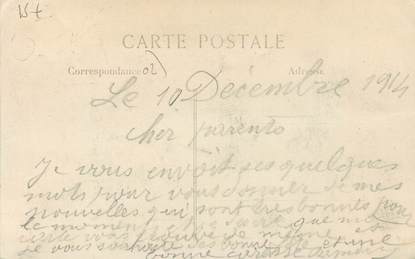 15+
CARTE POSTALE
Correspondance 02
Adresse
Le 10 Décembre 1914
cher parrents
Je vous envoit ses quelques
mots pour vous donner de mes
nouvelles qui sont tres bonnes pour
le moment que ma
carte vous trouve de meme et
Je vous souhaite bonne et une
bonne